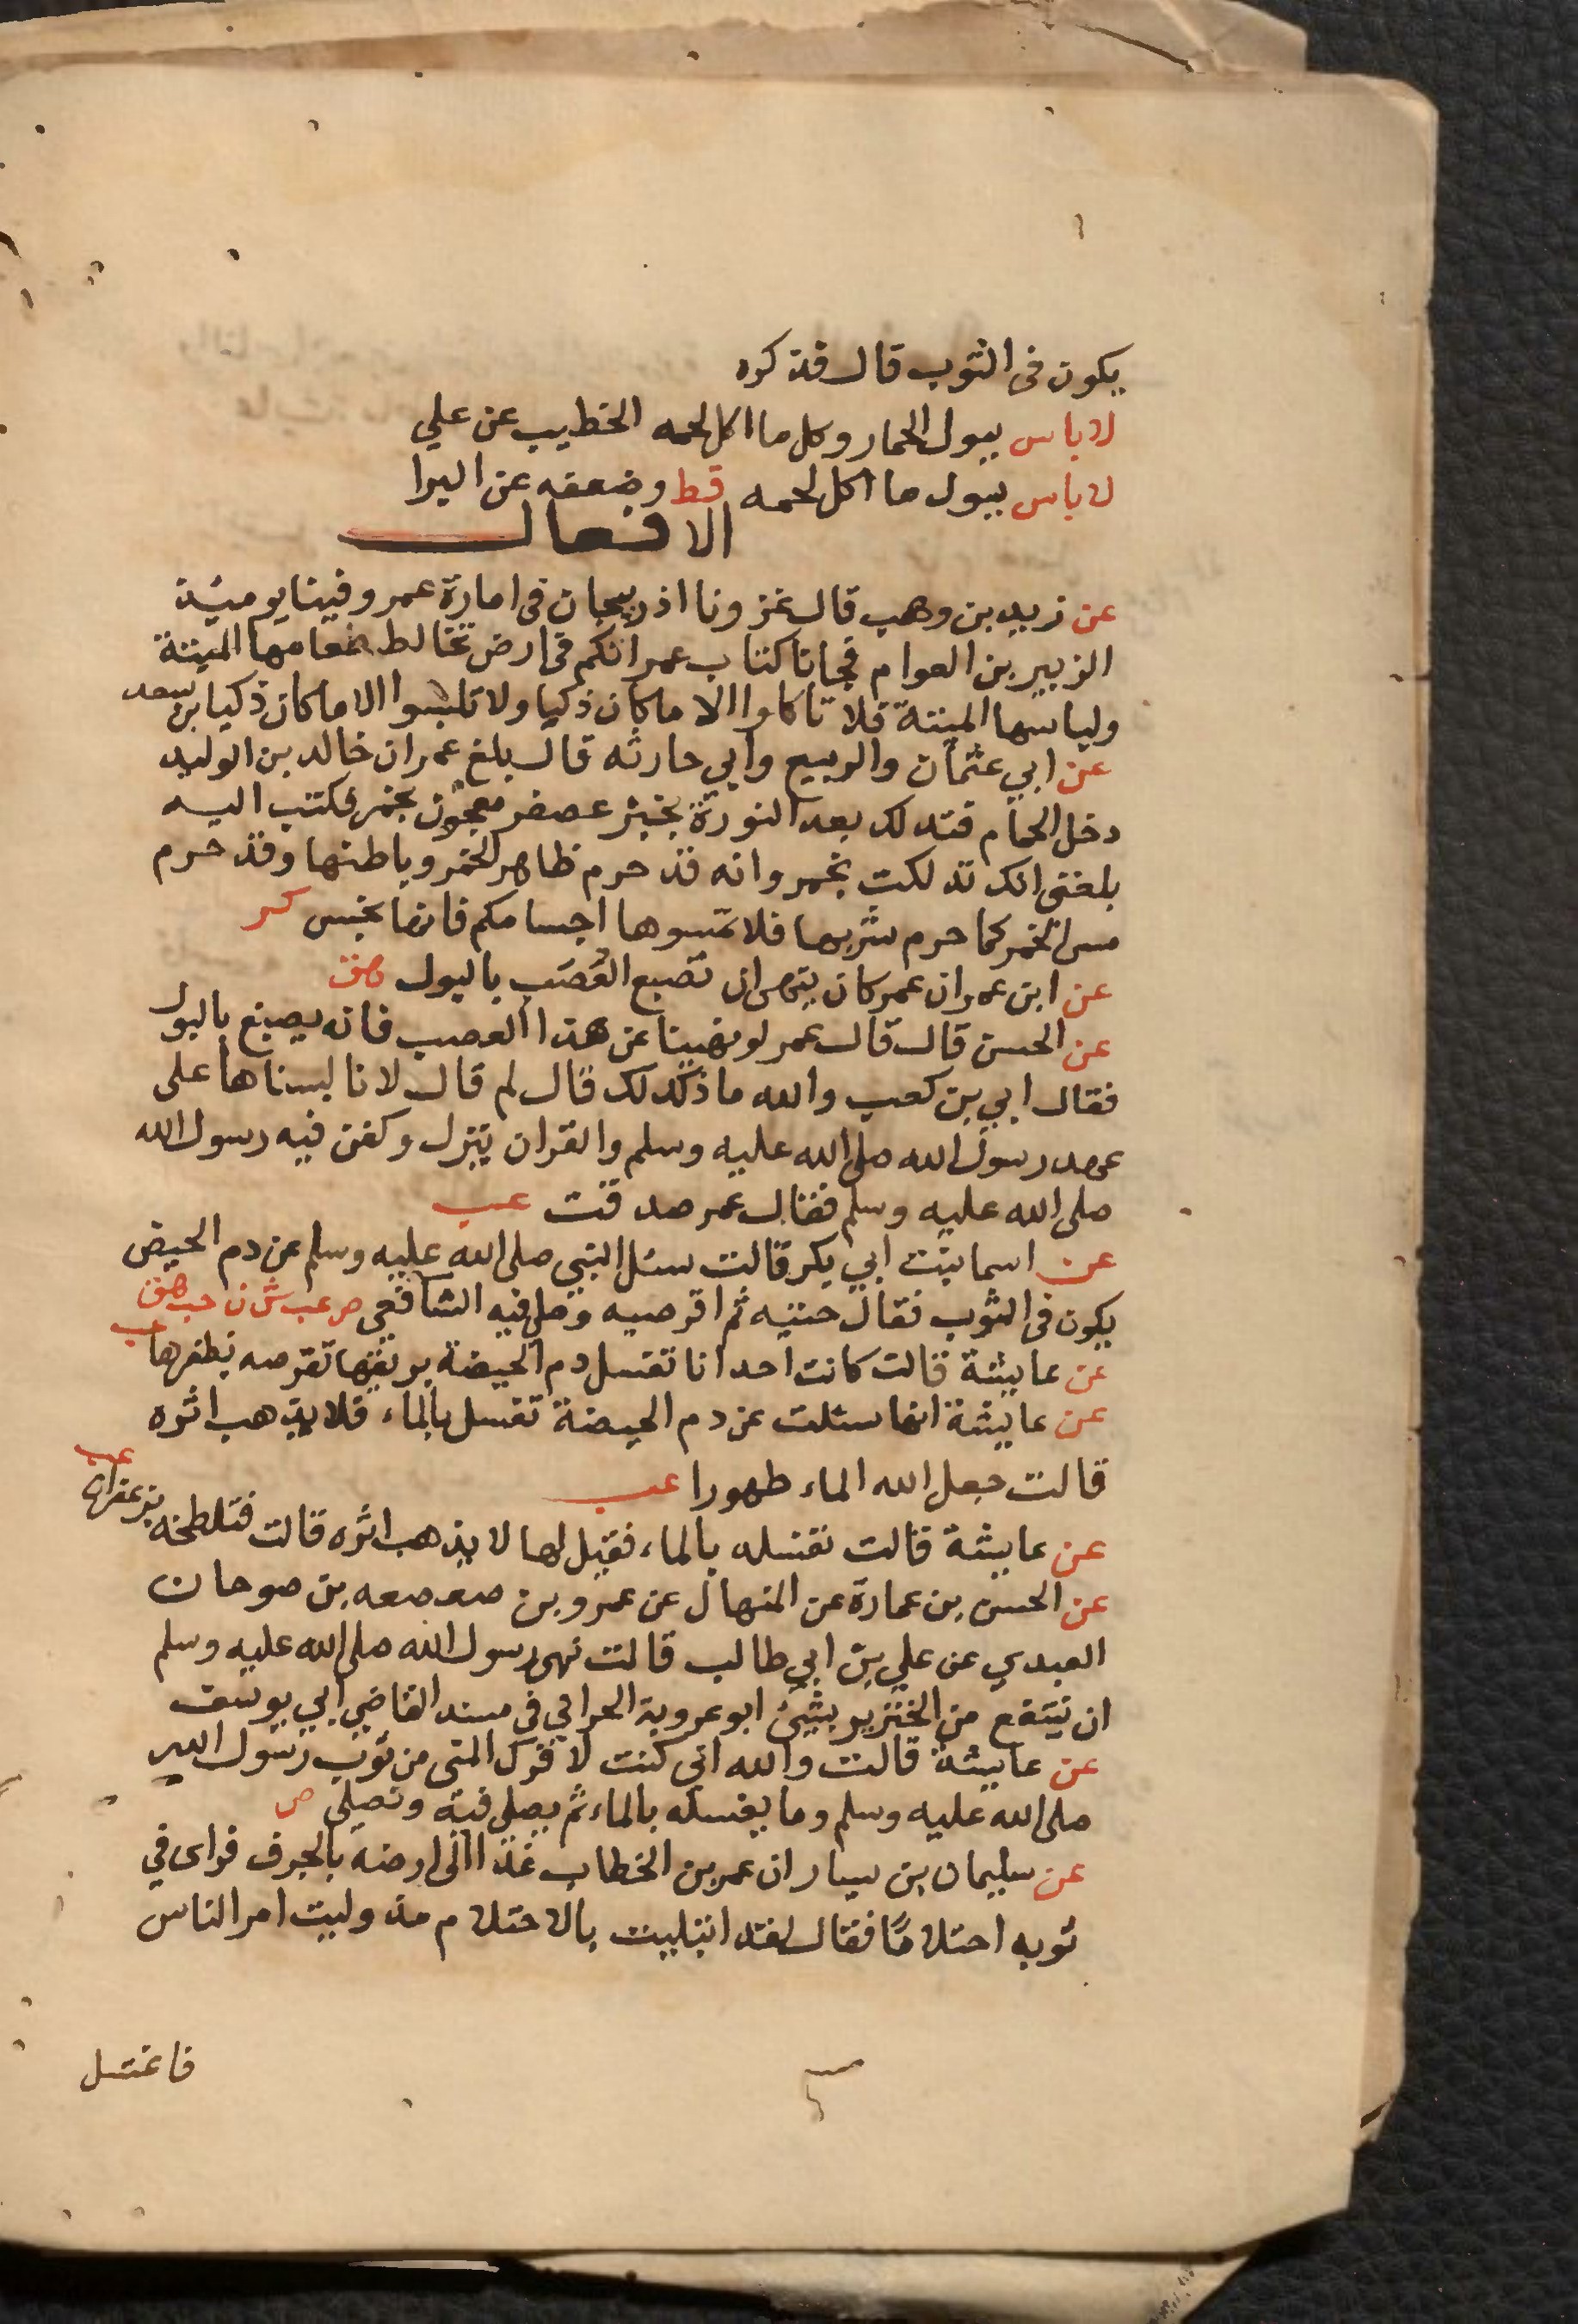 يكون فى الثوب قال فذكره
لاباس ببول الحمار وكل ما اكل لحمه الخطيب عن علي
لاباس ببول ما اكل لحمه قط وضعفه عن البرا
الافعال
عن زيد بن وهب قال غزونا اذربيجان فى امارة عمر وفينا يوميئذ
الزبير بن العوام فجانا كتاب عمر انكم فى ارض تخالط طعامها الميتة
ولباسها الميتة فلا تاكلوا الا ما كان ذكيا ولا تلبسوا الا ما كان ذكيا بن سعد
عن ابي عثمان والربيع وابي حارثه قال بلغ عمر ان خالد بن الوليد
دخل الحمام فتدلك بعد النورة بخبز عصفر معجون بخمر فكتب اليه
بلغنى انك تدلكت بخمر وانه قد حرم ظاهر الخمر وباطنها وقد حرم
مس الخمر كما حرم شربها فلا تمسوها اجسامكم فانها نجس كر
عن ابن عمر ان عمر كان ينهى ان تصبع العصب بالبول هق
عن الحسن قال قال عمر لو نهينا عن هذا العصب فانه يصبغ بالبول
فقال ابي بن كعب والله ما ذلك لك قال لم قال لانا لبسناها على
عهد رسول الله صلى الله عليه وسلم والقران ينزل وكفن فيه رسول الله
صلى الله عليه وسلم فقال عمر صدقت عب
عن اسما بنت ابي بكر قالت سئل النبي صلى الله عليه وسلم عن دم الحيض
يكون فى الثوب فقال حتيه ثم اقرصيه وصلى فيه الشافعي ص عب ش ن حب هق
عن عايشة قالت كانت احدانا تغسل دم الحيضة بريقها تقرصه بظفرها عب
عن عايشة انها سئلت عن دم الحيضة تغسل بالماء فلا يذهب اثره
قالت جعل الله الماء طهورا عب
عن عايشة قالت تغسله بالماء فقيل لها لا يذهب اثره قالت فتلطخه بزعفران عب
عن الحسن بن عمارة عن المنهال عن عمرو بن صعصعه بن صوحان
العبدي عن علي بن ابي طالب قالت نهى رسول الله صلى الله عليه وسلم
ان نتنفع من الخنزير بشئ ابو عروبة الحراني في مسند القاضي ابي يوسف
عن عايشة قالت والله اني كنت لافرك المنى من ثوب رسول الله
صلى الله عليه وسلم وما يغسله بالماء ثم يصلى فيه ونصلى ص
عن سليمان بن يسار ان عمر بن الخطاب غدا الى ارضه بالجرف فراى في
ثوبه احتلاما فقال لقد ابتليت بالاحتلام مذ وليت امر الناس
فاغتسل